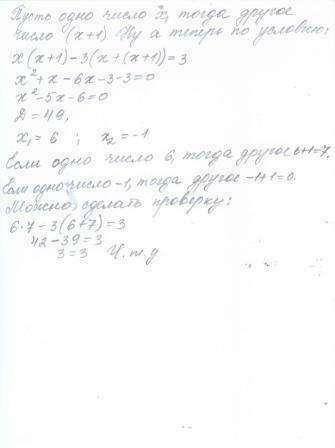 Пусть одно число x, тогда другое
число (x+1). Ну а теперь по условию:
x(x+1)-3(x+(x+1))=3
x²+x-6x-3-3=0
x²-5x-6=0
D=49,
x₁=6 ; x₂=-1
Если одно число 6, тогда другое 6+1=7.
Если одно число -1, тогда другое -1+1=0.
Можно сделать проверку:
6·7-3(6+7)=3
42-39=3
3=3 Ч.т.д